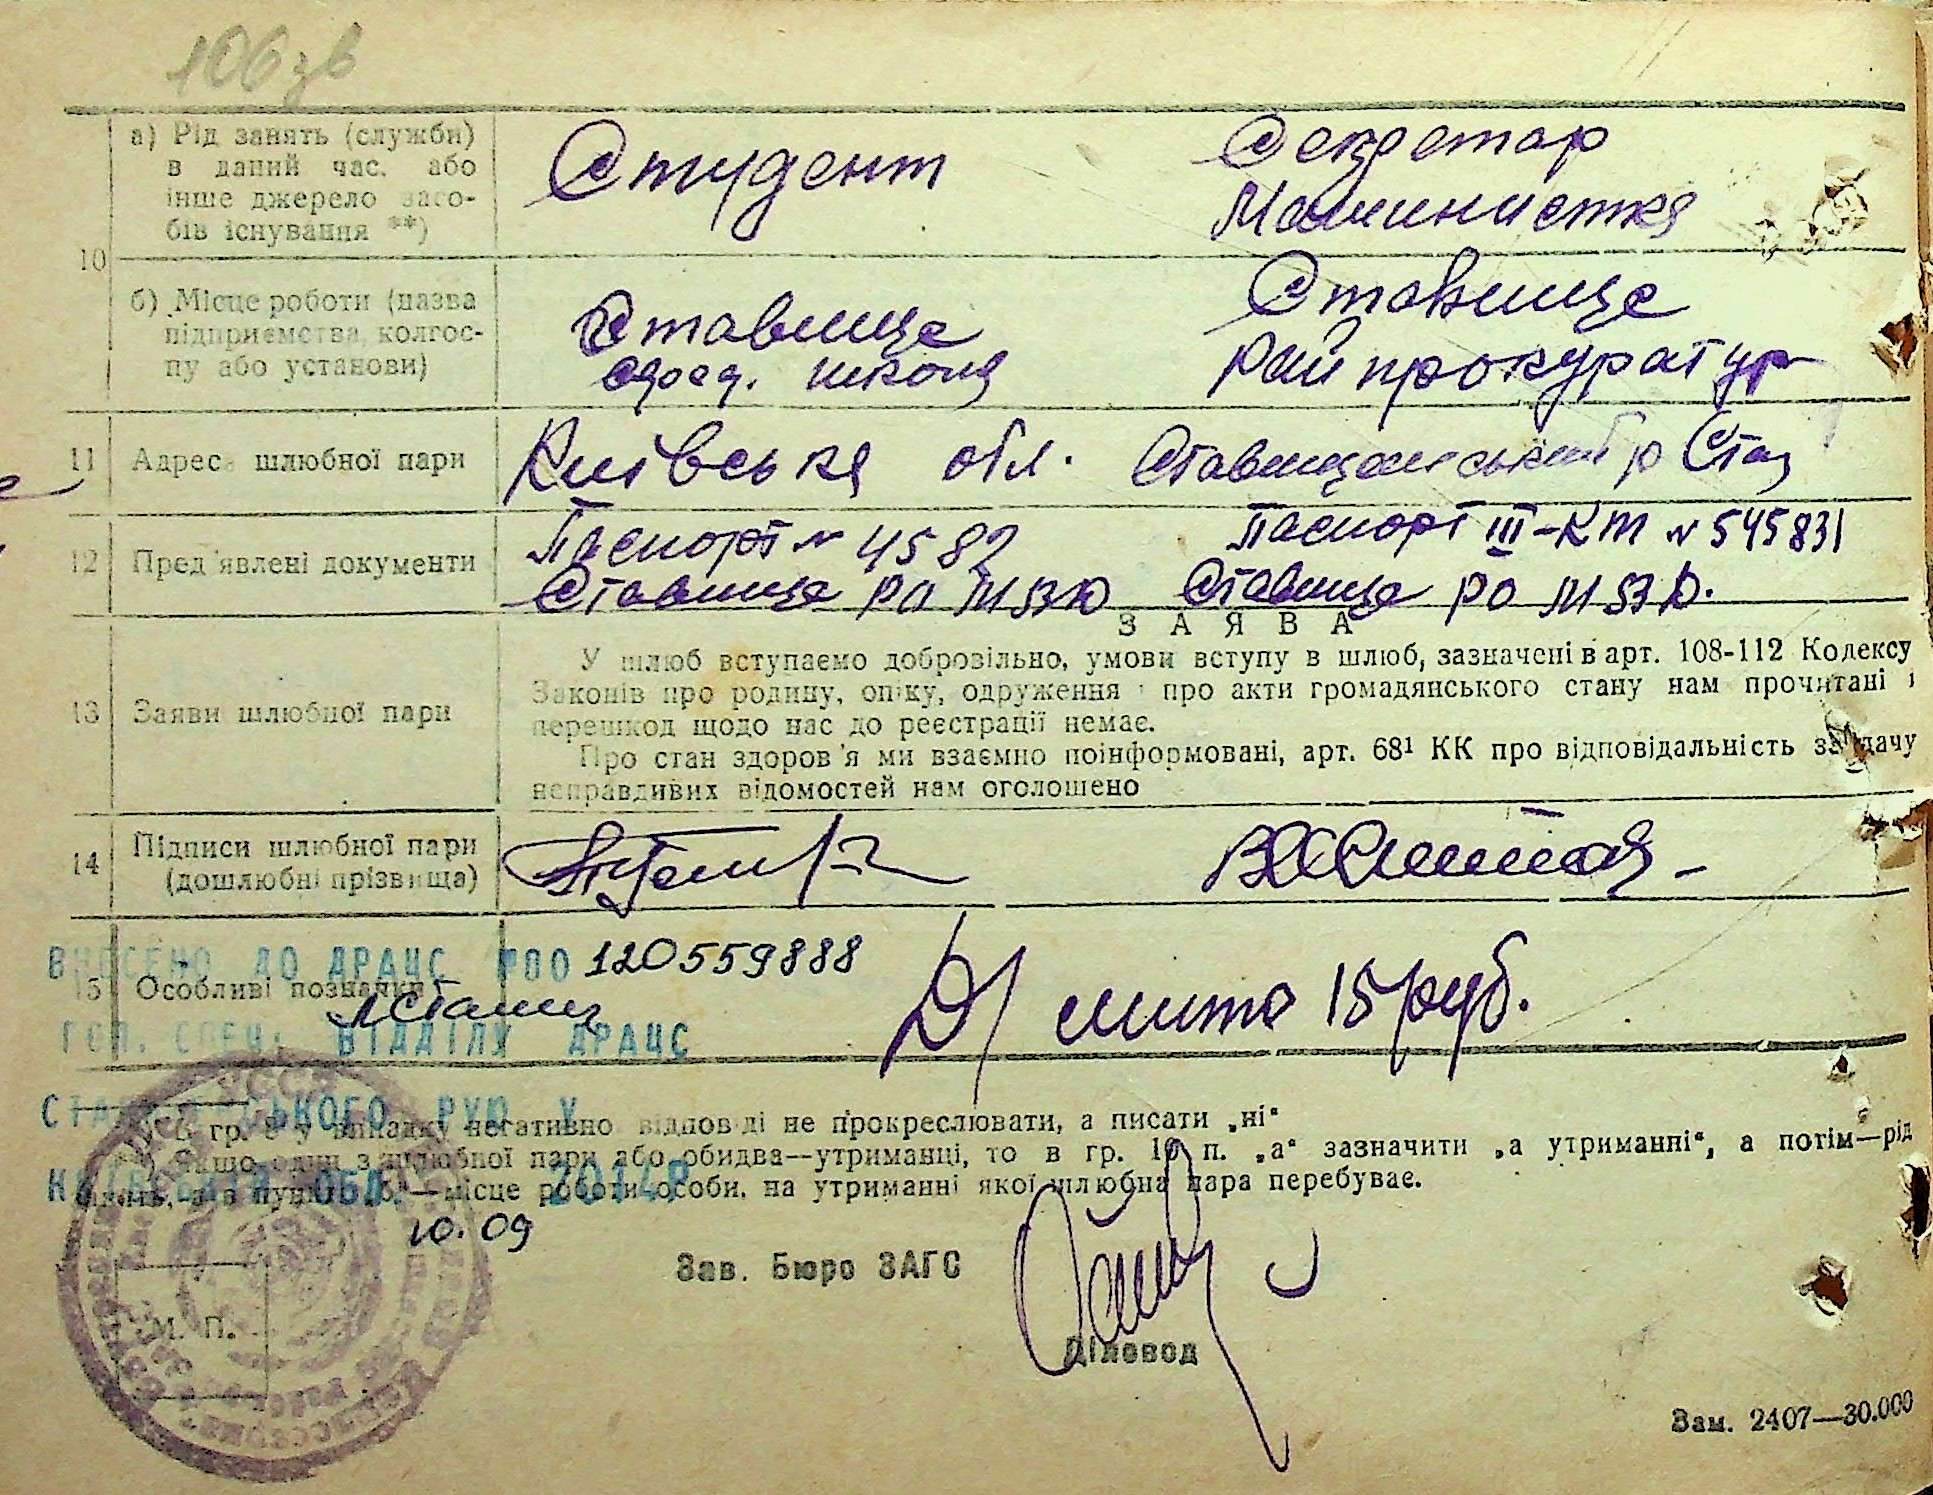 106 зв
а) Рід занять (служби) в даний час, або інше джерело засобів існування **)
Студент
Секретар
Машинистка
10
б) Місце роботи (назва підприємства, колгоспу або установи)
Ставище
серед. школа
Ставище
Райпрокуратур
11 Адреса шлюбної пари
Київська обл. Ставищанський р Став
12 Пред'явлені документи
Паспорт № 4582
Паспорт III-КТ № 545831
Ставище РО МВД
Ставище РО МВД.
ЗАЯВА
13 Заяви шлюбної пари
У шлюб вступаємо добровільно, умови вступу в шлюб, зазначені в арт. 108-112 Кодексу
Законів про родину, опіку, одруження і про акти громадянського стану нам прочитані і
перешкод щодо нас до реєстрації немає.
Про стан здоров'я ми взаємно поінформовані, арт. 68¹ КК про відповідальність за дачу
неправдивих відомостей нам оголошено
14 Підписи шлюбної пари
(дошлюбні прізвища)
ВНЕСЕНО ДО ДРАЦС 120559888
15 Особливі позначки
мито 15 руб.
ГОЛ. СПЕЦ. ВІДДІЛУ ДРАЦС
СТАВИЩЕНСЬКОГО РУЮ У
*) В гр. 8 у випадку негативно відповіді не прокреслювати, а писати „ні“
Якщо один з шлюбної пари або обидва—утриманці, то в гр. 10 п. „а“ зазначити „а утриманні“, а потім—рід
занять, а в пункті „б“—місце роботи особи, на утриманні якої шлюбна пара перебуває.
КИЇВСЬКІЙ ОБЛ. 2014Р
10.09
Зав. Бюро ЗАГС
М. П.
Діловод
Зам. 2407—30.000